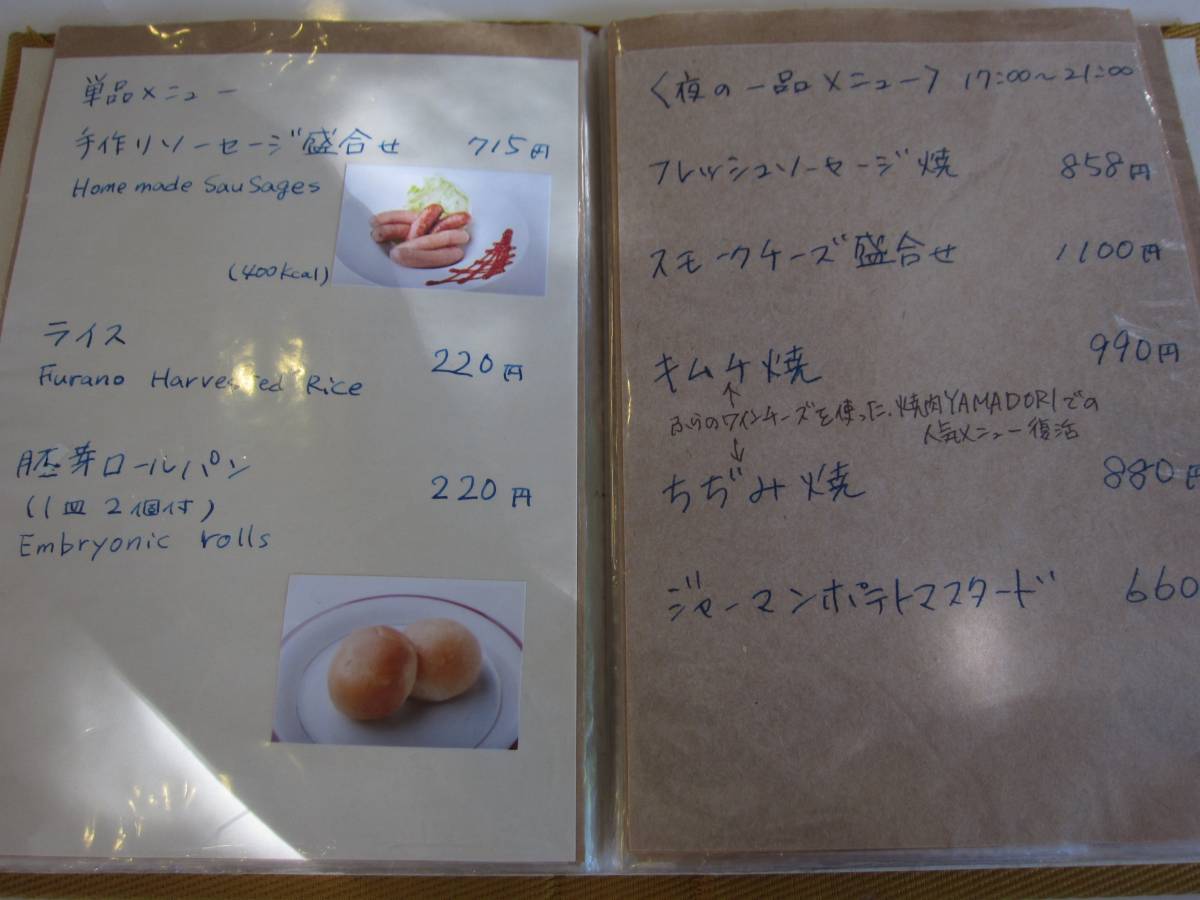 単品メニュー
手作りソーセージ盛合せ 715円
Home made SauSages
(400kcal)
ライス
220円
Furano Harvested Rice
胚芽ロールパン
(1皿2個付)
220円
Embryonic rolls
〈夜の一品メニュー〉 17:00~21:00
フレッシュソーセージ焼 858円
スモークチーズ盛合せ 1100円
キムチ焼 990円
ふらのワインチーズを使った、焼肉YAMADORIでの
人気メニュー復活
ちぢみ焼 880円
ジャーマンポテトマスタード 660